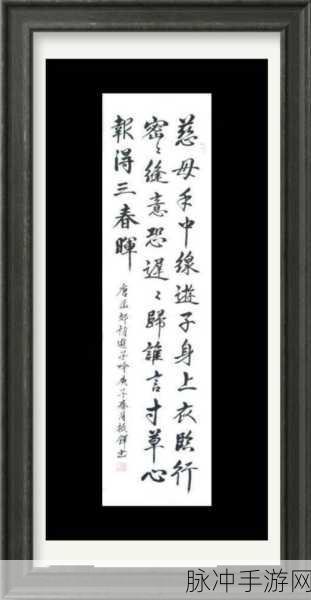 慈母手中線遊子身上衣臨行
密々縫意恐遲々歸誰言寸草心
報得三春暉
唐孟郊詩遊子吟庚子春月
脉冲手游网